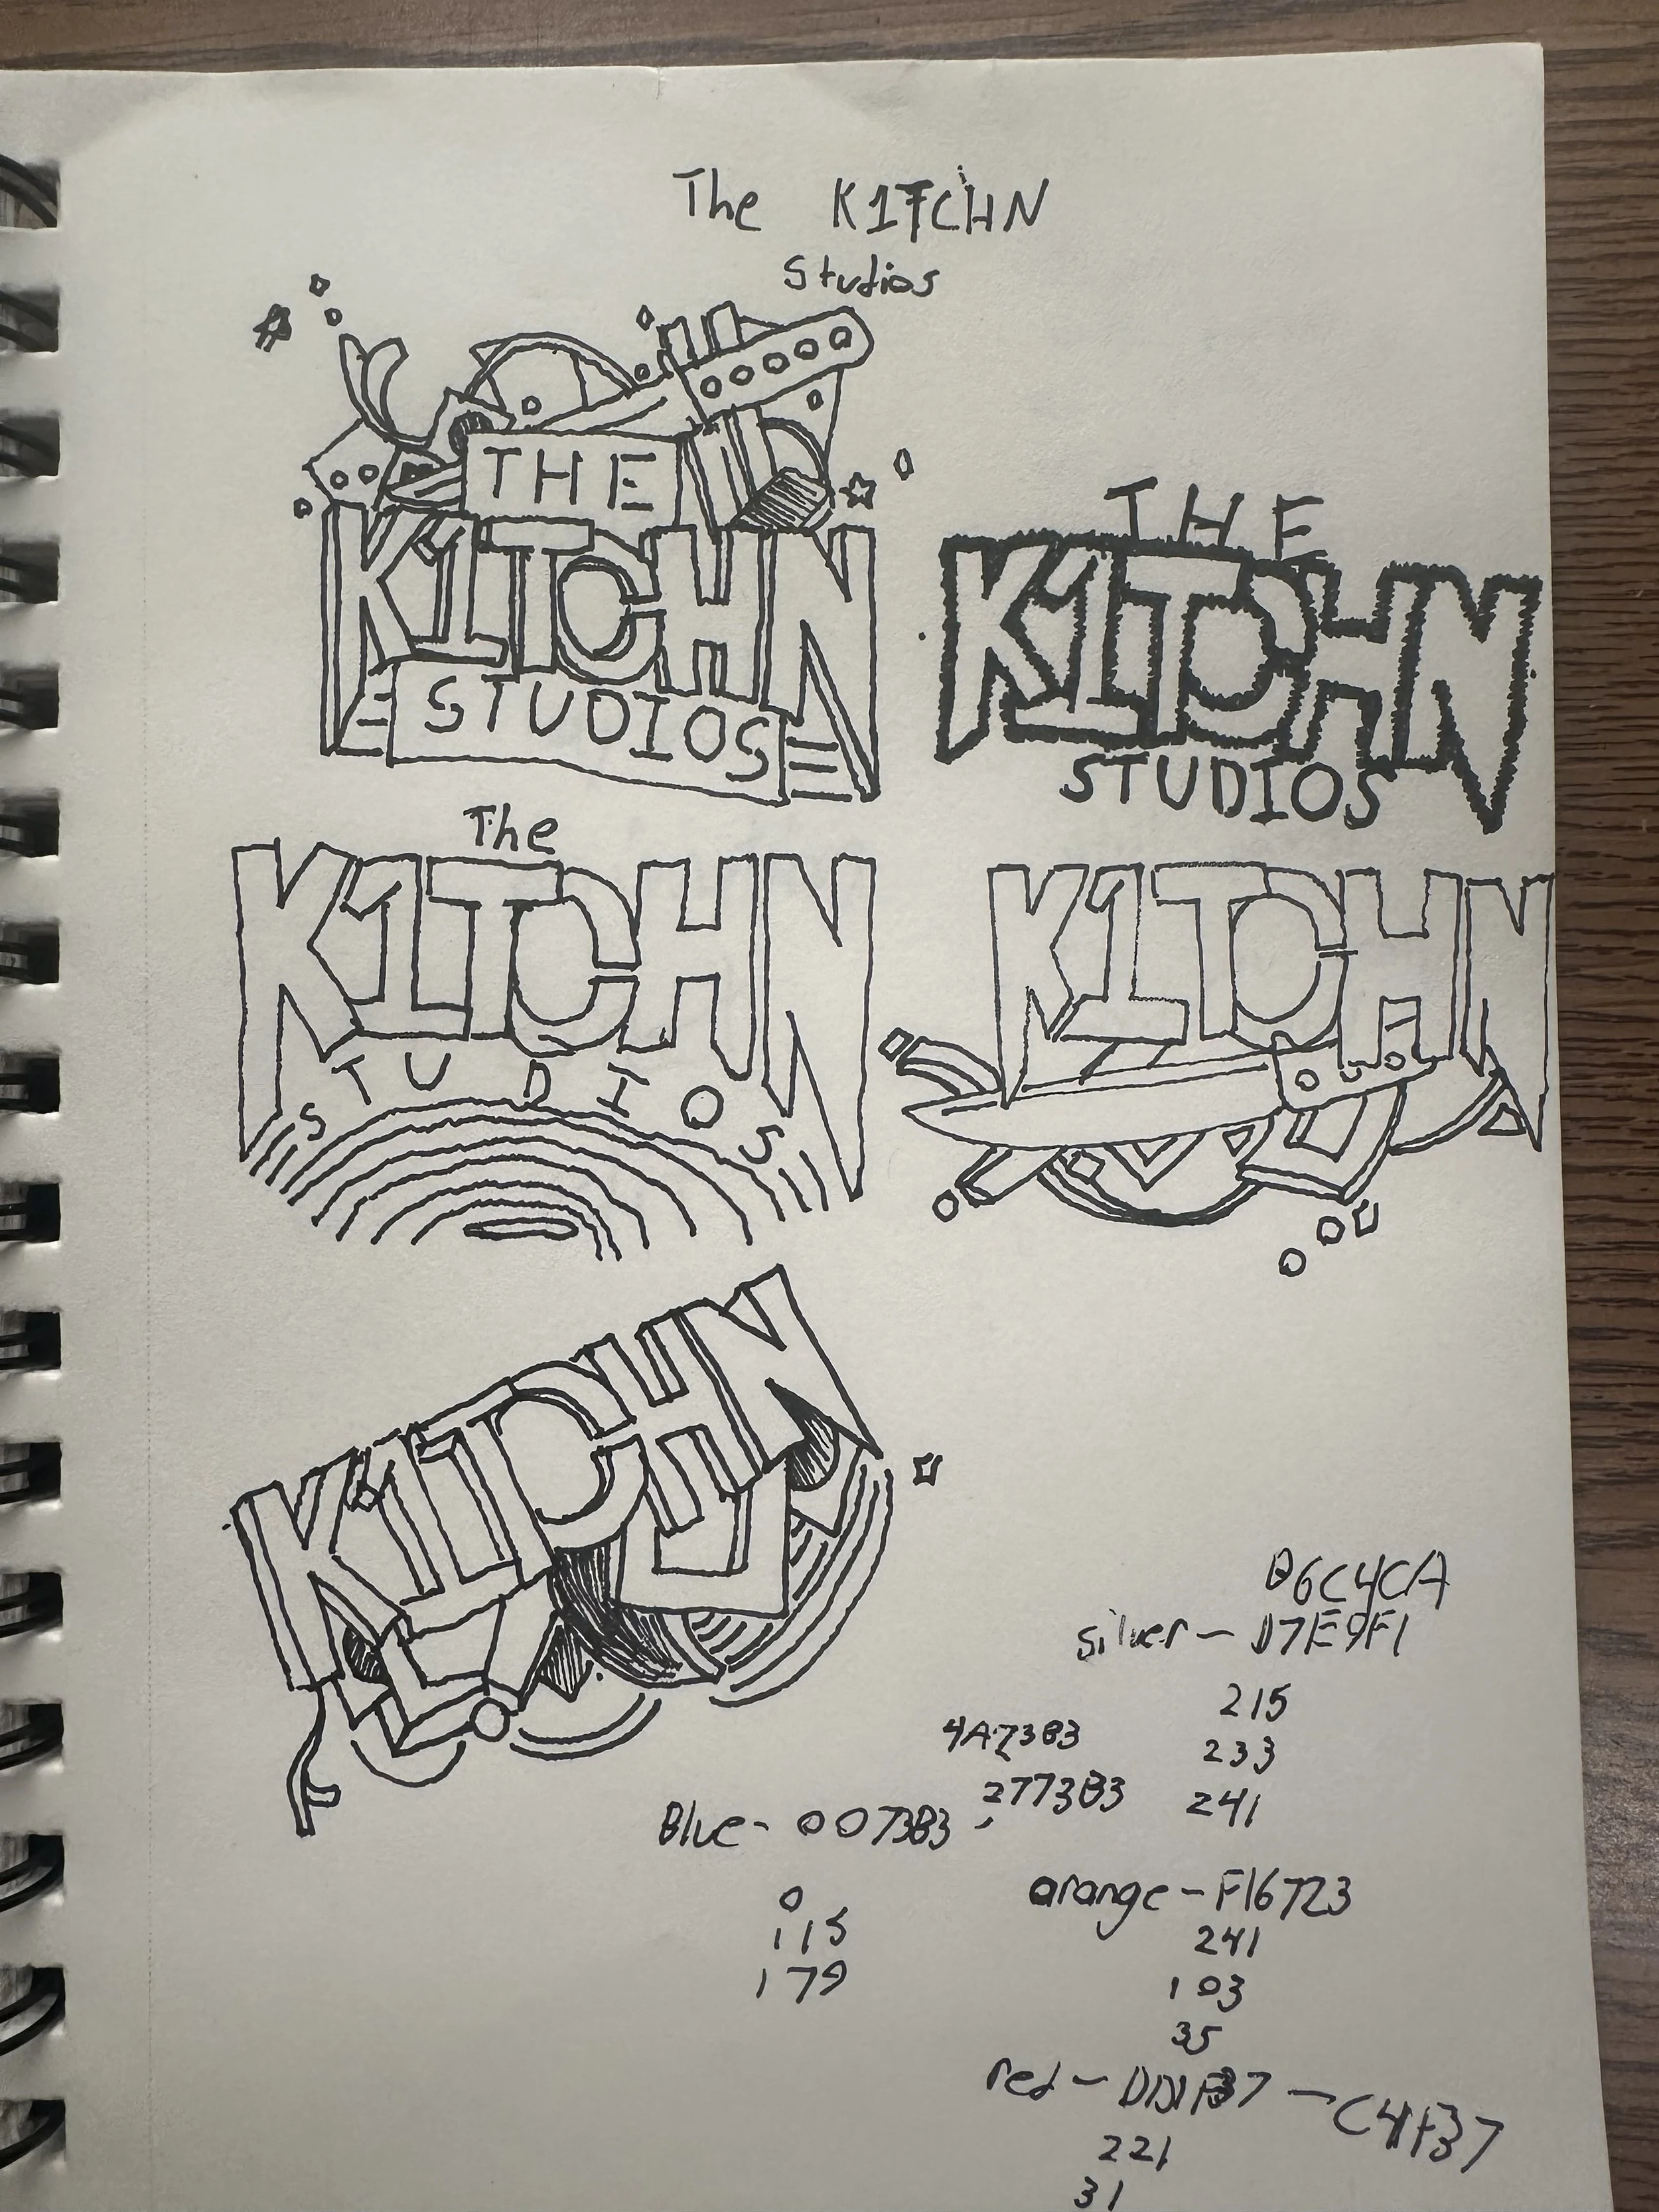 The K1TCHN
Studios
THE
K1TCHN
STUDIOS
THE
K1TCHN
STUDIOS
The
K1TCHN
STUDIOS
K1TCHN
K1TCHN
B6C4CA
silver - D7E9F1
215
233
241
4A73B3
277383
Blue - 0073B3
0
115
179
orange - F16723
241
103
35
red - DD1F37 - C41F37
221
31